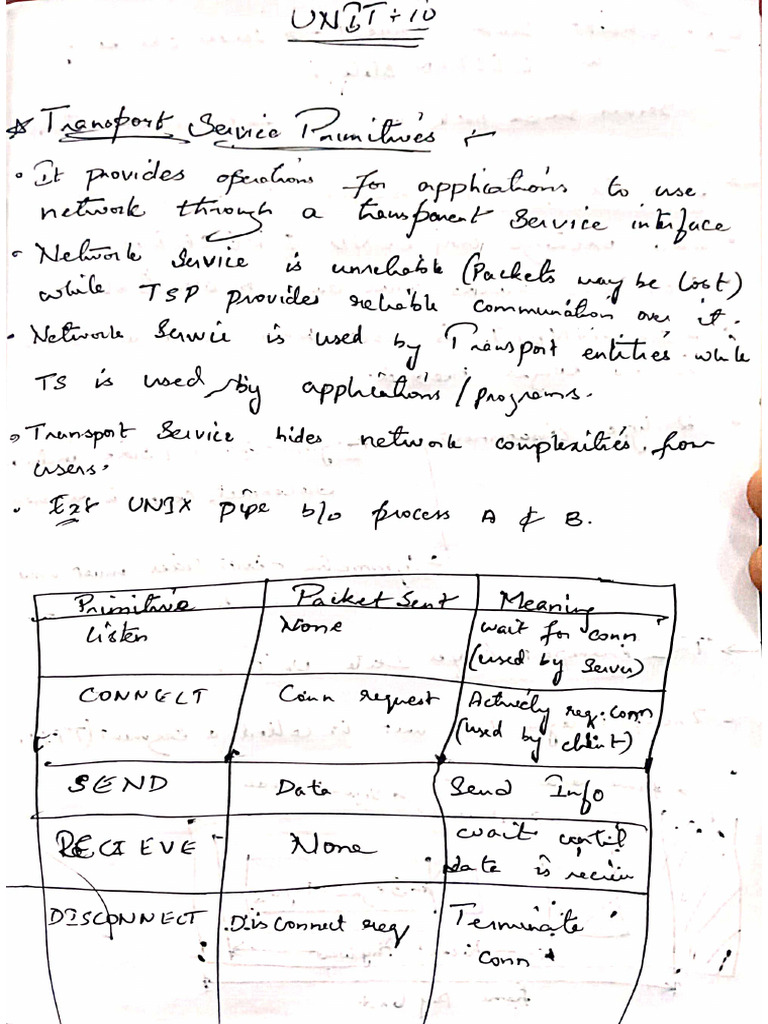 UNIT÷10
* Transport Service Primitives :-
• It provides operations for applications to use
network through a transparent service interface
• Network Service is unreliable (Packets may be lost)
while TSP provides reliable communation over it.
• Network Servie is used by Transport entities while
TS is used by applications / programs.
• Transport Service hides network complexities from
users.
• Ex: UNIX pipe b/w process A & B.
Primitive Packet Sent Meaning
Listen None wait for conn
(used by Server)
CONNECT Conn request Actively req. conn
(used by client)
SEND Data Send Info
RECIEVE None wait until
data is reciev
DISCONNECT Disconnect req Terminate
conn